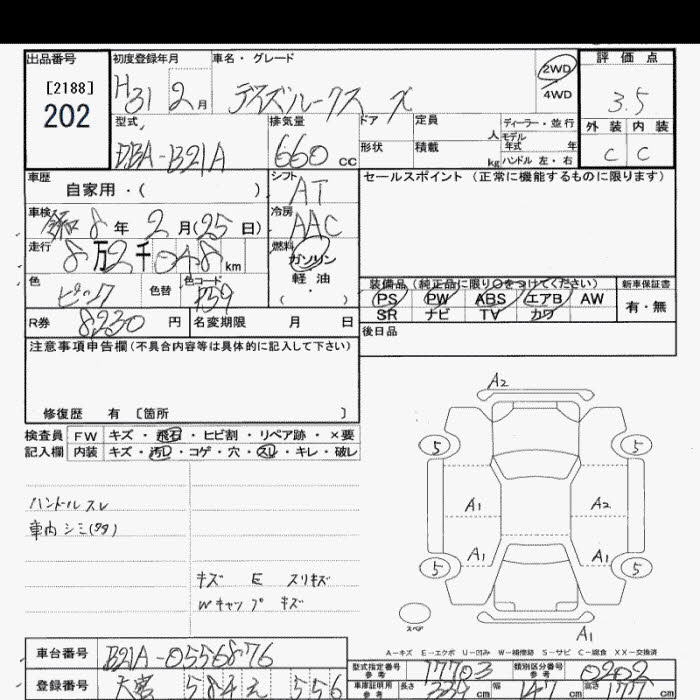 出品番号
[2188]
202
初度登録年月
H31 2月
車名・グレード
デイズルークス X
2WD
4WD
評価点
3.5
外装 内装
C C
型式
DBA-B21A
排気量
660 cc
ドア
定員 人
形状
積載 kg
ディーラー・並行
モデル年式 年
ハンドル 左・右
車歴
自家用・( )
シフト
AT
セールスポイント(正常に機能するものに限ります)
車検
令和 8年 2月(25日)
冷房
AAC
走行
8万2千048km
燃料
ガソリン
軽油
( ・ )
色
ピンク
色替
色コード
装備品(純正品に限り○をつけてください)
新車保証書
PS PW ABS エアB AW
有・無
SR ナビ TV カワ
R券
8230 円
名変期限 月 日
後日品
注意事項申告欄(不具合内容等は具体的に記入して下さい)
修復歴 有 〔箇所 〕
検査員
記入欄
FW キズ・飛石・ヒビ割・リペア跡・×要
内装 キズ・汚レ・コゲ・穴・スレ・キレ・破レ
ハンドル スレ
車内 シミ(タタ)
キズ E スリキズ
Wキャップ キズ
A2
5 5
A1 A2
A1 A1
5 5
スペア
A1
A-キズ E-エクボ U-凹み W-補修跡 S-サビ C-腐食 XX-交換済
車台番号
B21A-0556876
型式指定番号
参考
17703
類別区分番号
参考
0202
登録番号
大宮 584 え 556
車庫証明用
参考
長さ
339 cm
幅
147 cm
高さ
177 cm